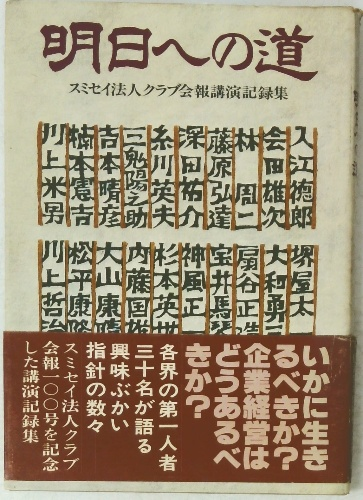 明日への道
スミセイ法人クラブ会報講演記録集
入江徳郎
会田雄次
林周二
藤原弘達
深田祐介
糸川英夫
三鬼陽之助
吉本晴彦
楠本憲吉
川上米男
堺屋太
大和勇三
扇谷正造
宝井馬琴
神風正一
杉本英世
内藤国雄
大山康晴
松平康隆
川上哲治
いかに生き
るべきか？
企業経営は
どうあるべ
きか？
各界の第一人者
三十名が語る
興味ぶかい
指針の数々
スミセイ法人クラブ
会報一〇〇号を記念
した講演記録集